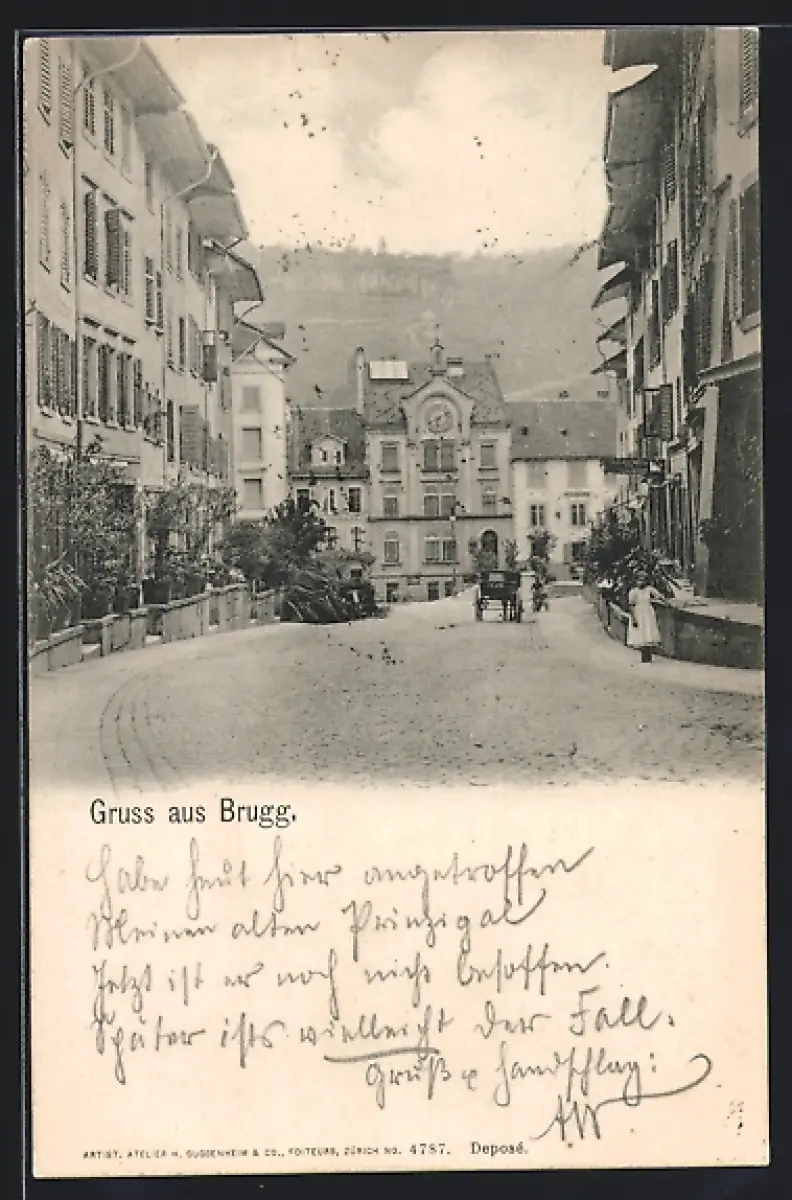 Gruss aus Brugg.
Habe heut hier angetroffen
Meinen alten Prinzipal
Jetzt ist er noch nicht besoffen.
Später ists vielleicht der Fall.
Gruß & Handschlag:
AW
ARTIST. ATELIER H. GUGGENHEIM & CO., EDITEURS, ZÜRICH NO. 4787. Deposé.